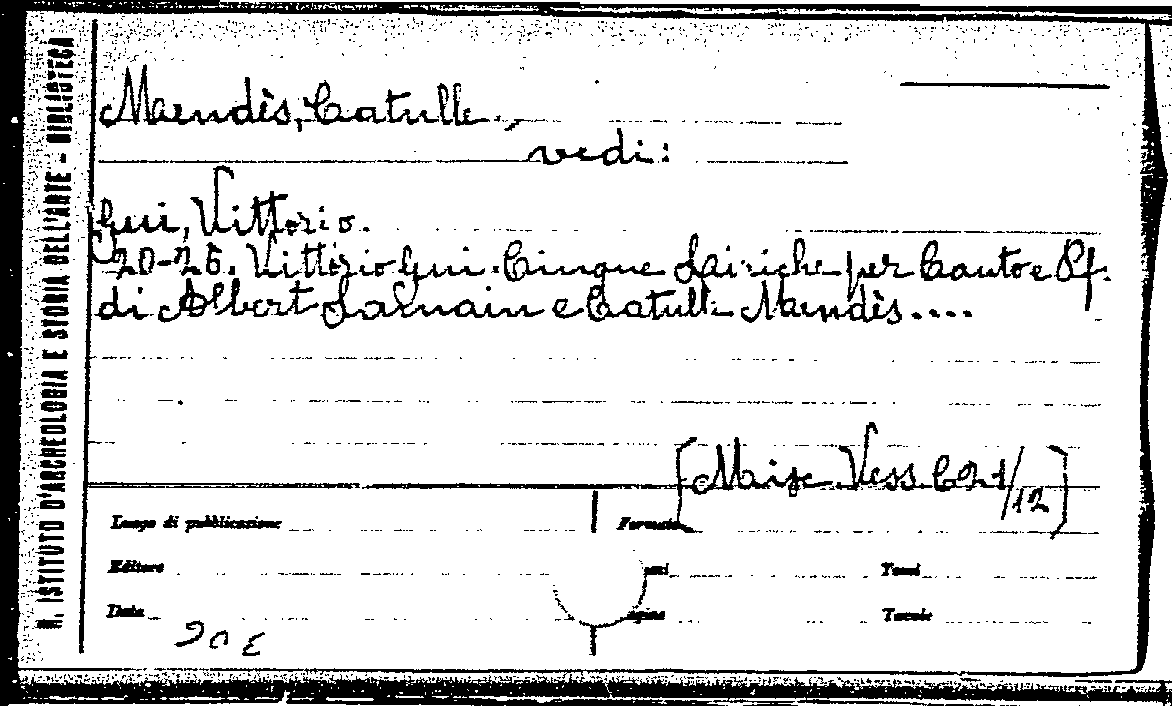 R. ISTITUTO D'ARCHEOLOGIA E STORIA DELL'ARTE - BIBLIOTECA
Mendès, Catulle.,
vedi:
Gui, Vittorio.
20-26. Vittorio Gui. Cinque Liriche per Canto e Pf.
di Albert Samain e Catulle Mendès....
[Misc. Vess. C 21/12]
Luogo di pubblicazione
Formato
Editore
Tomi
Data
Tavole